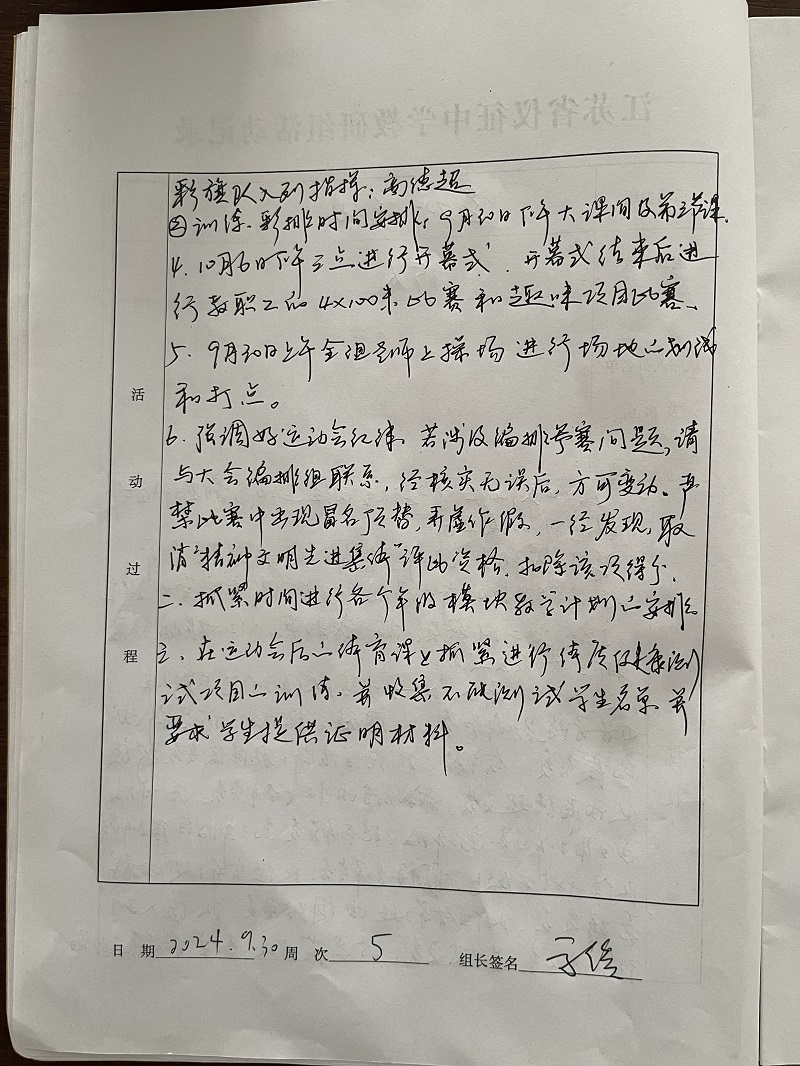 彩旗队入列指挥：高德超
②训练、彩排时间安排：9月30日下午大课间及第三节课.
4. 10月6日下午三点进行开幕式. 开幕式结束后进
行教职工的4×100米比赛和趣味项目比赛、
5. 9月30日上午全组老师上操场进行场地的划线
和打点。
6. 强调好运动会纪律. 若涉及编排等赛问题，请
与大会编排组联系，经核实无误后，方可变动。严
禁比赛中出现冒名顶替，弄虚作假，一经发现，取
消“精神文明先进集体”评比资格，扣除该项得分.
二、抓紧时间进行各个年级模块教学计划的安排.
三、在运动会后的体育课上抓紧进行体质健康测
试项目的训练. 并收集不能测试学生名单并
要求学生提供证明材料。
活动过程
日 期 2024.9.30 周 次 5 组长签名